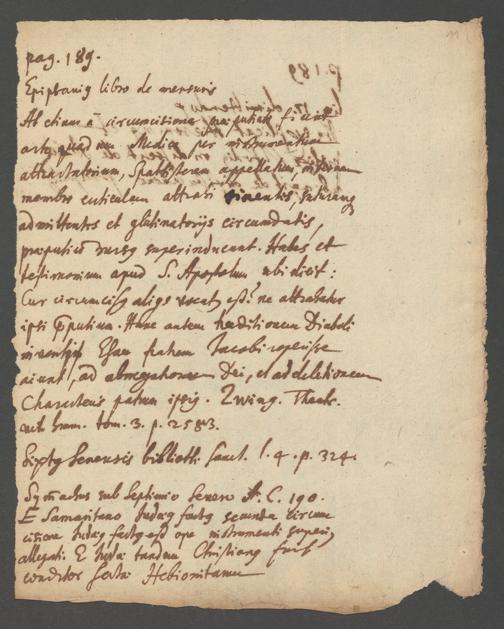 pag. 189.
Epiphanig libro de mensuris
At etiam ē circumcisione præputiati fiunt
arte quadam Medica per instrumentum
attractatorium, Spathisterem appellatum, internam
membri cuticulam attrahi patientis, suturasq
admittentes et glutinatorijs circumdatis,
præputio rursq superinducunt. Habes et
testimonium apud S. Apostolum ubi dicit:
Cur circumcisq aliqs vocatq est? ne attrahatur
ipsi præputium. Hanc autem traditionem Diaboli
Esau fratrem Jacobi
aiunt, ad abnegationem Dei, et ad deletionem
Characteris patrum ipsiq. Zwing. Theatr.
vit. hum. tom. 3. p. 2583.
Sixtq Senensis biblioth. sanct. l. 4. p. 324.
Symachus sub Septimio Severo A. C. 190.
E Samaritano Judæq factq secunda circum
cisione Judæq factq est ope instrumenti superiq
allegati. E Judæo tandem Christianq fuit
conditor sectæ Hebionitarum
p. 189